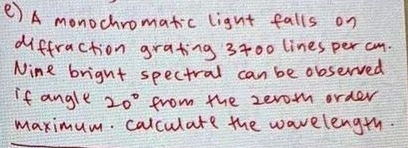 e) A monochromatic light falls on
diffraction grating 3700 lines per cm.
Nine bright spectral can be observed
if angle 20° from the zeroth order
maximum. Calculate the wavelength.